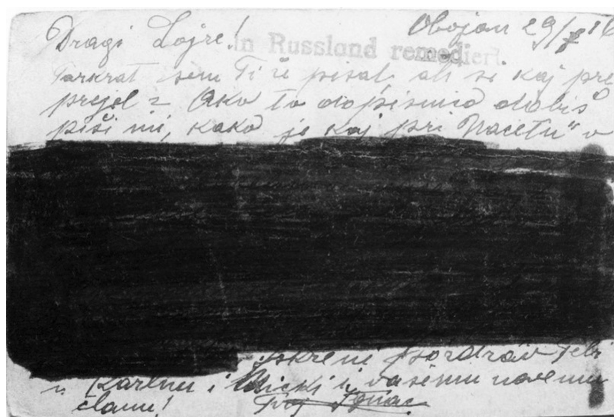 Dragi Lojze! Obojan 29/ 16
In Russland remediert
sem Ti že pisal, ali si kaj pre
prejel = Ako to dopisnico dobiš
piši mi, kako je kaj pri "Nacetu" v
Iskreni pozdrav Tebi
Karlnu i Micki i vašemu novemu
članu! Tvoj Ignac